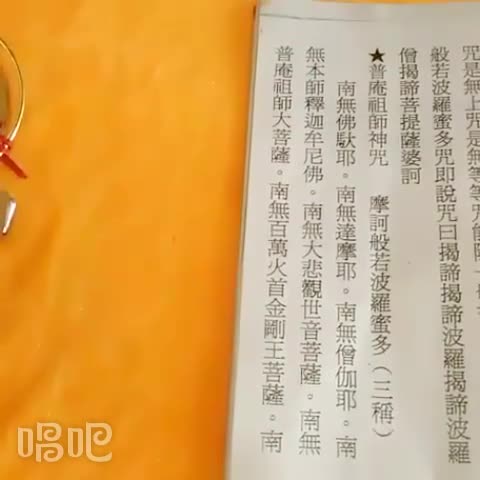 咒是無上咒是無等等咒能除一
般若波羅蜜多咒即說咒曰揭諦揭諦波羅揭諦波羅
僧揭諦菩提薩婆訶
★普庵祖師神咒 摩訶般若波羅蜜多（三稱）
南無佛馱耶。南無達摩耶。南無僧伽耶。南
無本師釋迦牟尼佛。南無大悲觀世音菩薩。南無
普庵祖師大菩薩。南無百萬火首金剛王菩薩。南
唱吧